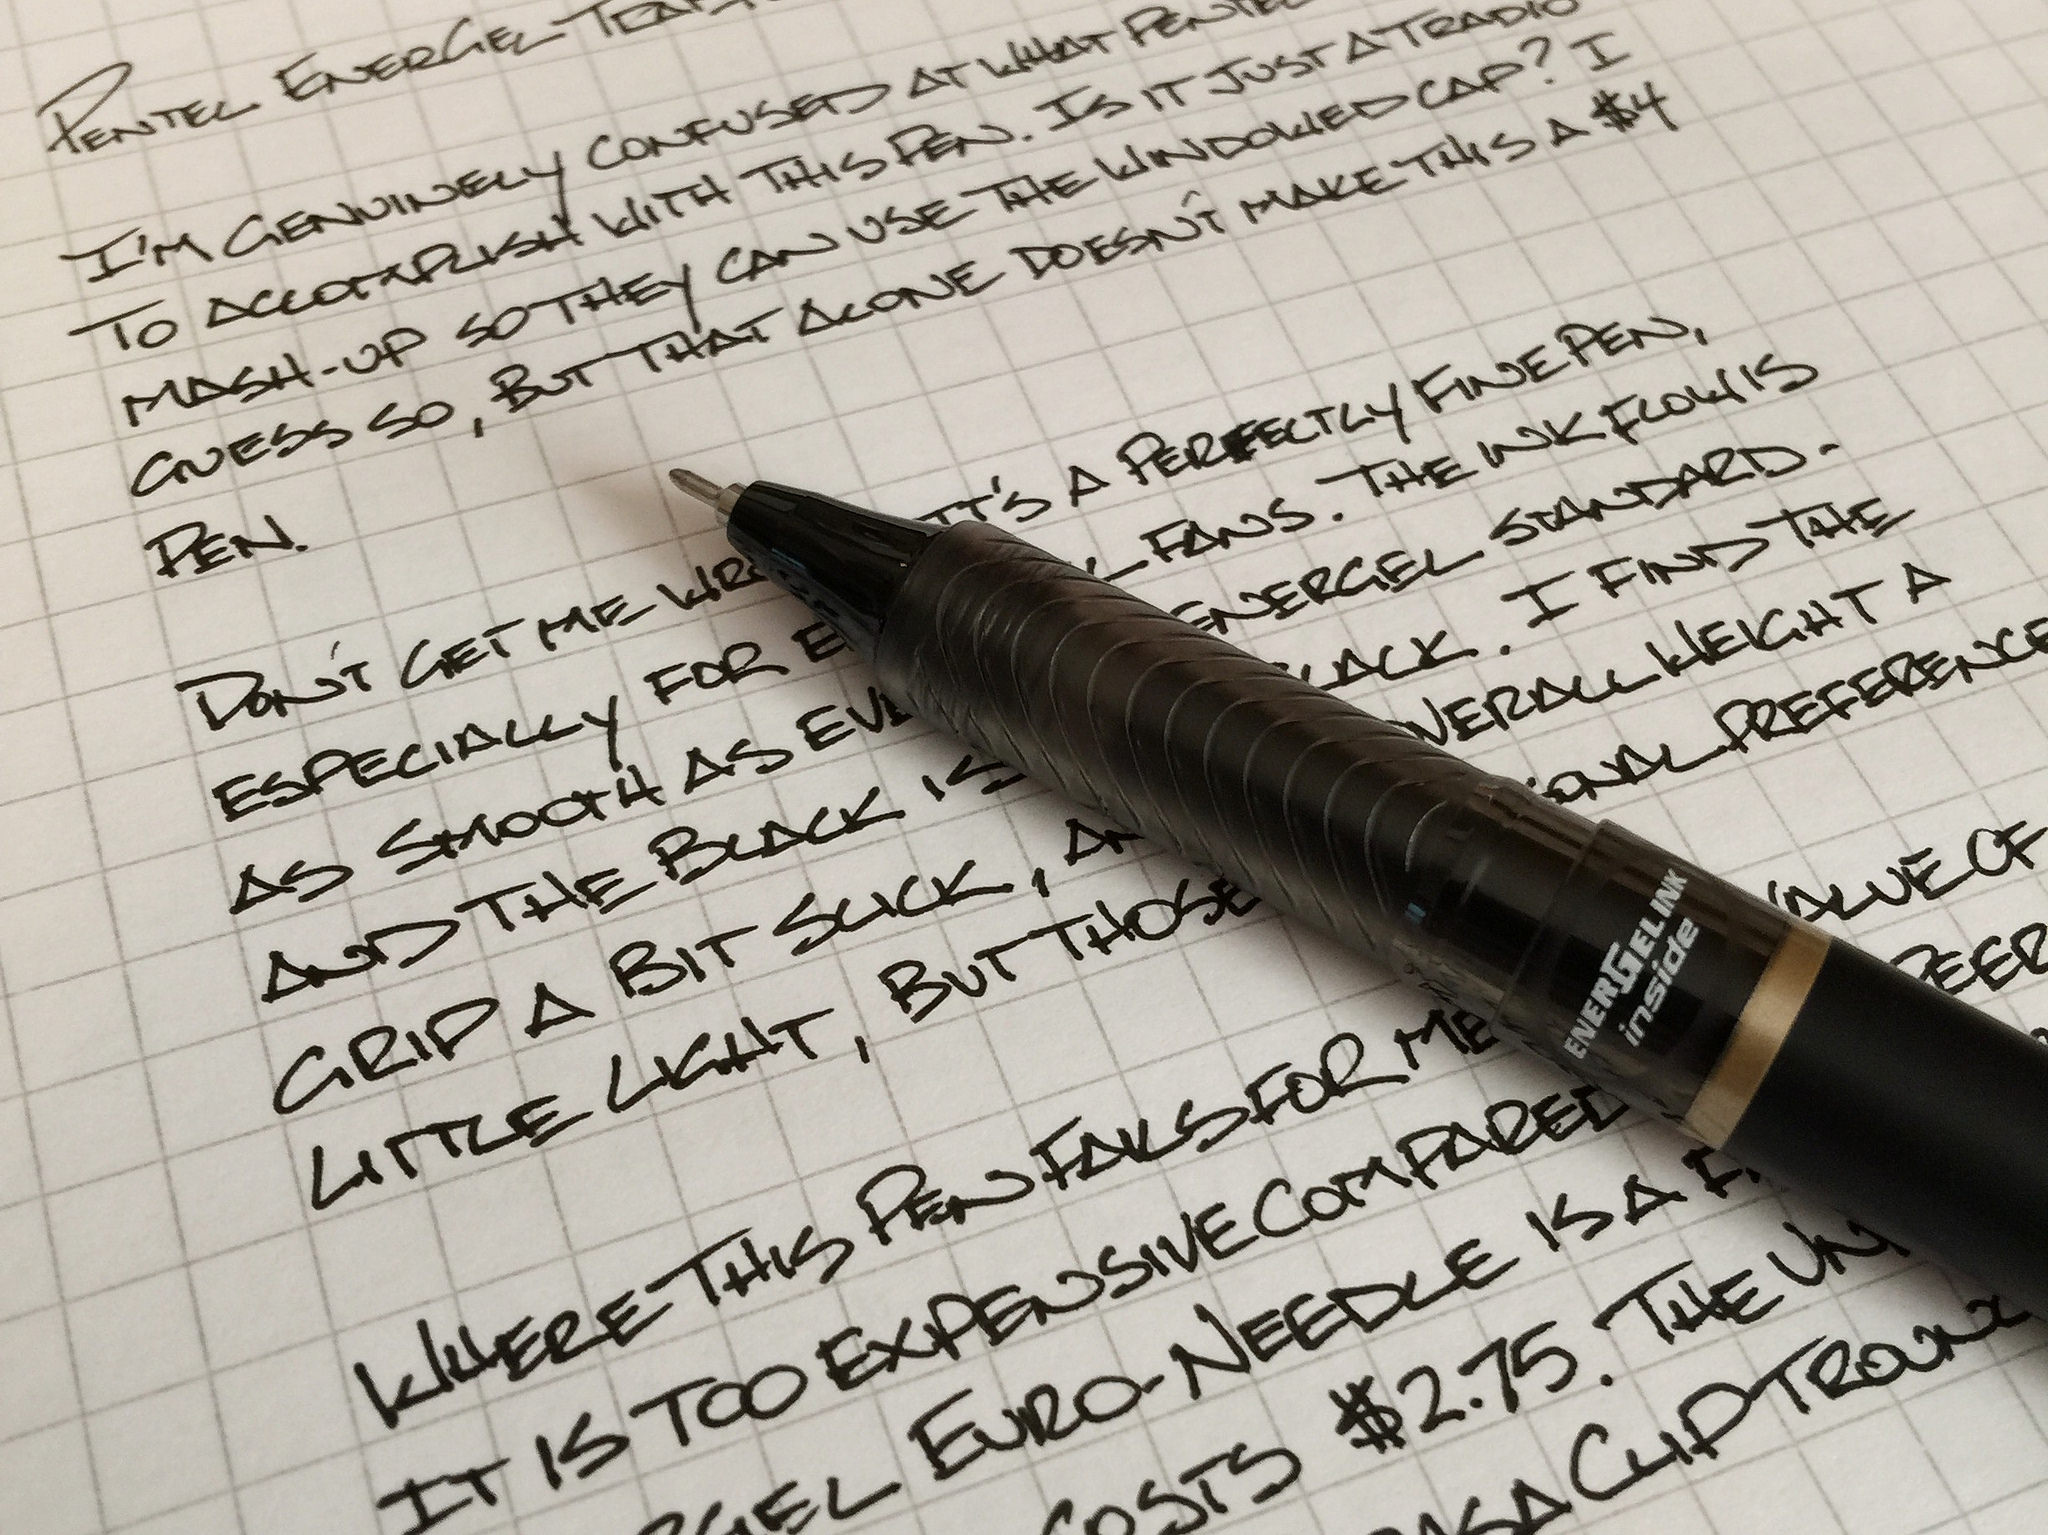 PENTEL ENERGEL
I'M GENUINELY CONFUSED AT WHAT PENTEL
TO ACCOMPLISH WITH THIS PEN. IS IT JUST A TRADIO
MASH-UP SO THEY CAN USE THE WINDOWED CAP? I
GUESS SO, BUT THAT ALONE DOESN'T MAKE THIS A $4
PEN.
DON'T GET ME IT'S A PERFECTLY FINE PEN,
ESPECIALLY FOR FANS. THE INK FLOW IS
AS SMOOTH AS ENERGEL STANDARD -
AND THE BLACK IS BLACK. I FIND THE
GRIP A BIT SLICK, OVERALL WEIGHT A
LITTLE LIGHT, BUT THOSE PREFERENCE
WHERE THIS PEN FAILS FOR ME VALUE OF
IT IS TOO EXPENSIVE COMPARED
EURO-NEEDLE IS A
COSTS $2.75. THE
CLIP
ENERGEL INK
inside